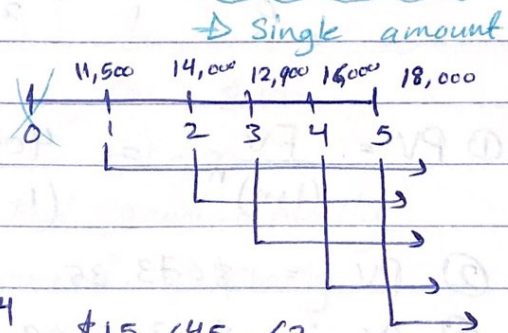 → Single amount
11,500 14,000 12,900 16,000 18,000
0 1 2 3 4 5
4 $15,645.62